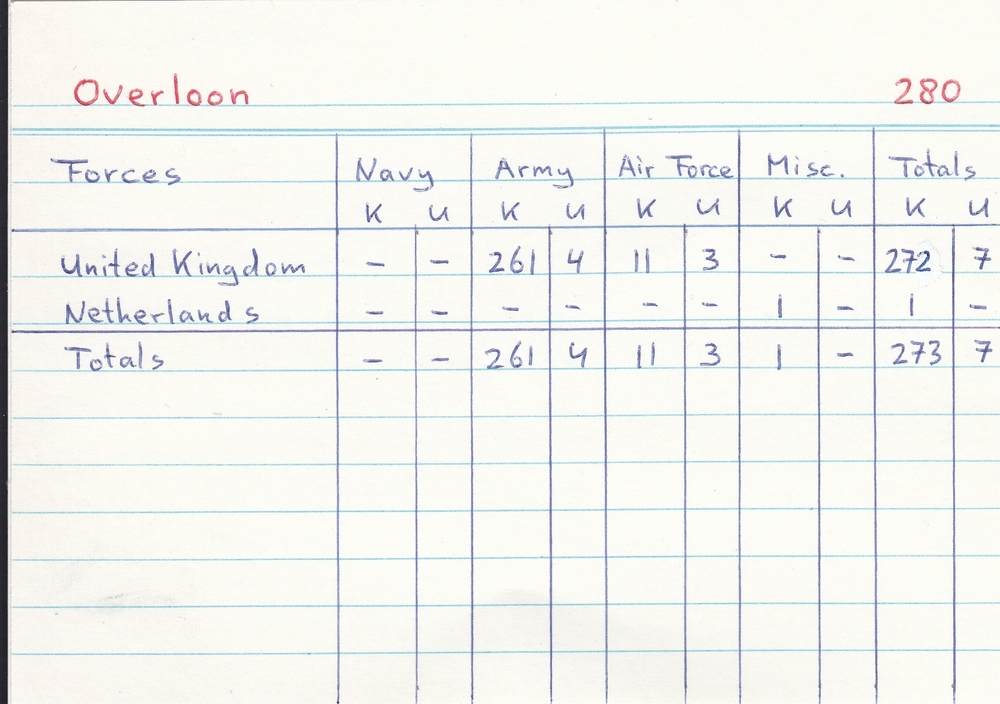 Overloon 280
Forces Navy Army Air Force Misc. Totals
K U K U K U K U K U
United Kingdom - - 261 4 11 3 - - 272 7
Netherlands - - - - - - 1 - 1 -
Totals - - 261 4 11 3 1 - 273 7